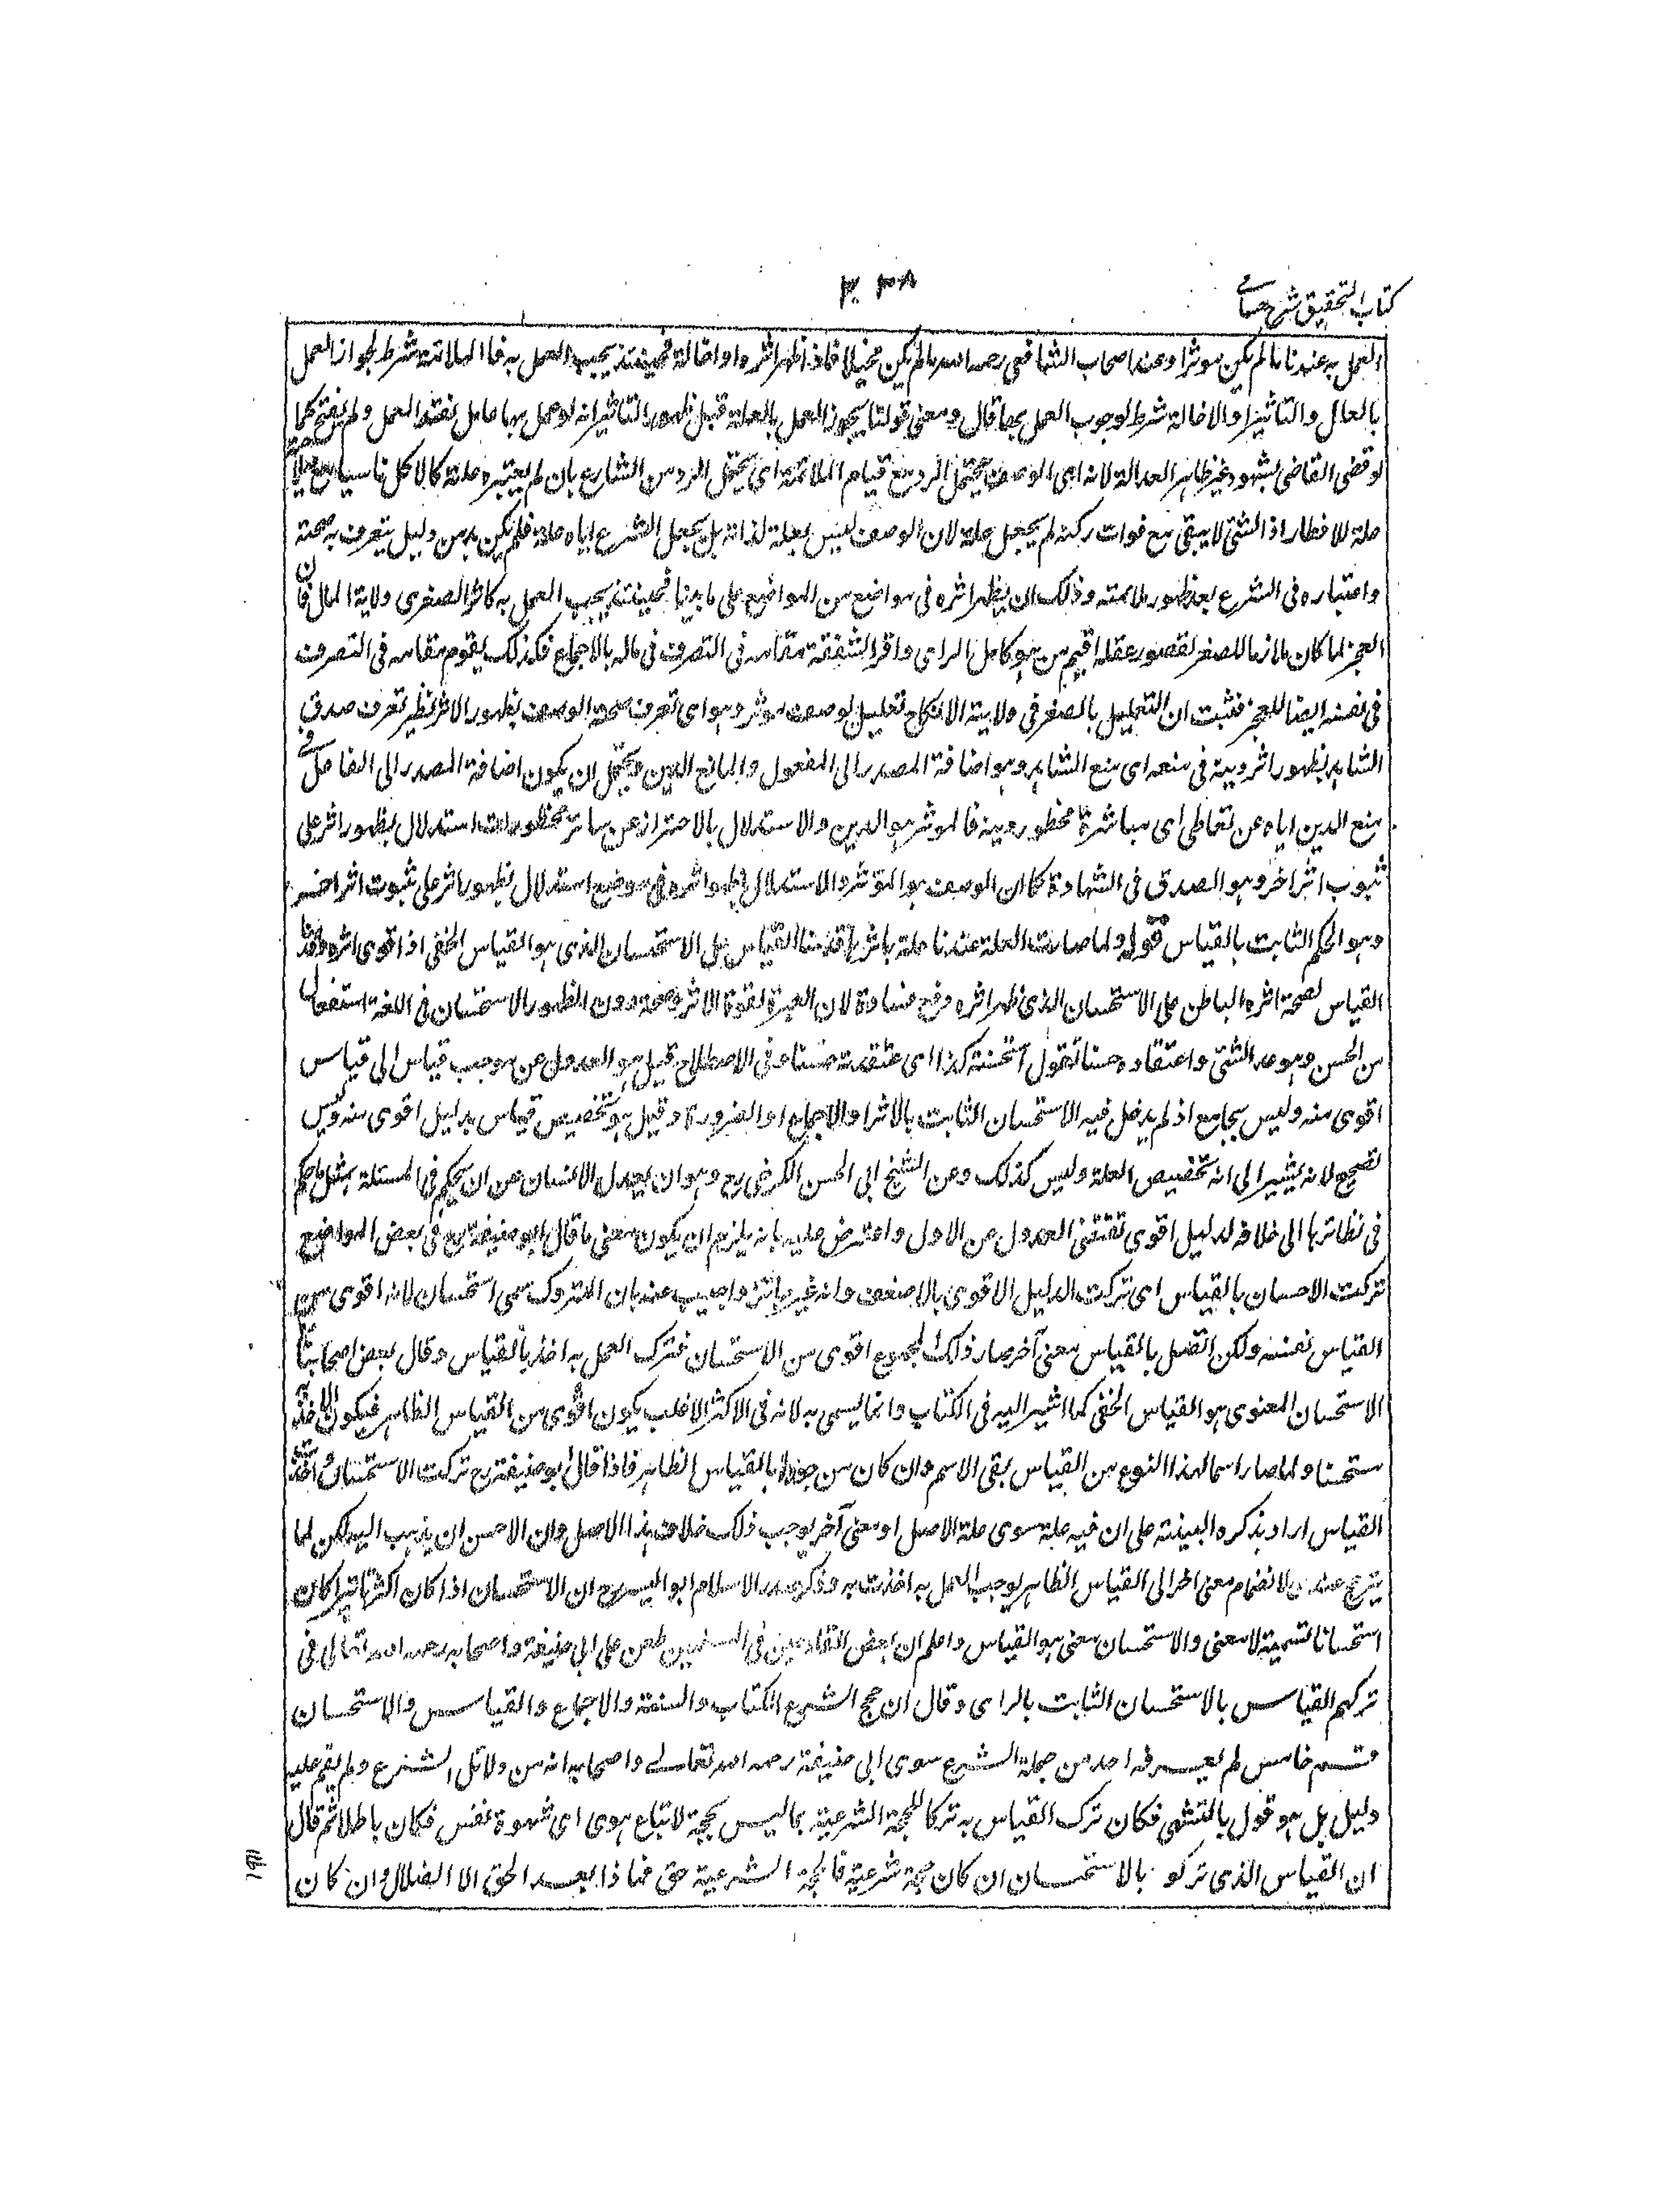 كتاب التحقيق شرح حسامى
٣٣٨
العمل به عندنا ما لم يكن موثرا وعند اصحاب الشافعى رحمه الله ما لم يكن مخيلا فاذا ظهر اثره او اخالة فحينئذ يجب العمل به فالملائمة شرط لجواز العمل
بالعلل والتاثير او الاخالة شرط لوجوب العمل بها قال ومعنى قولنا يجوز العمل بالعلة قبل ظهور التاثير انه لو عمل بها عامل نفذ العمل ولم يفسخ كما
لو قضى القاضى بشهود غير ظاهر العدالة لانه اى الوصف يحتمل الرد مع قيام الملائمة اى يحتمل الرد من الشارع بان لم يعتبره علة كالاكل ناسيا
علة للافطار اذ الشئ لا يبقى مع فوات ركنه لم يجعل علة لان الوصف ليس بعلة لذاته بل يجعل الشرع اياه علة فلم يكن بد من دليل يتعرف به صحته
واعتباره فى الشرع بعد ظهور ملائمته وذلك ان يظهر اثره فى مواضع من المواضع على ما بينا فحينئذ يجب العمل به كاثر الصغر فى ولاية المال فان
العجز لما كان لازما للصغر لقصور عقله اقيم من هو كامل الراى وافر الشفقة مقامه فى التصرف فى ماله بالاجماع فكذلك يقوم مقامه فى التصرف
فى نفسه ايضا للعجز فثبت ان التعليل بالصغر فى ولاية الانكاح تعليل بوصف موثر وهو اى تعرف صحة الوصف بظهور الاثر نظير تعرف صدق
الشاهد بظهور اثر دينه فى منعه اى منع الشاهد وهو اضافة المصدر الى المفعول والمانع الدين ويحتمل ان يكون اضافة المصدر الى الفاعل فى
منع الدين اياه عن تعاطى اى مباشرة محظور دينه فالموثر هو الدين والاستدلال بالاحتراز عن سائر محظورات استدلال بظهور اثر على
ثبوب اثر اخر وهو الصدق فى الشهادة كما ان الوصف هو الموثر والاستدلال بظهور اثره فى موضع استدلال بظهور اثر على ثبوت اثر اخر
وهو الحكم الثابت بالقياس قوله ولما صارت العلة عندنا علة باثرها قدمنا القياس على الاستحسان الذى هو القياس الخفى اذا قوى اثره وقدمنا
القياس لصحة اثره الباطن على الاستحسان الذى ظهر اثره وخفى فساده لان العبرة لقوة الاثر وصحته دون الظهور الاستحسان فى اللغة استفعال
من الحسن وهو عد الشئ واعتقاده حسنا تقول استحسنته كذا اى اعتقدته حسنا وفى الاصطلاح قيل هو العدول عن موجب قياس الى قياس
اقوى منه وليس بجامع اذ لم يدخل فيه الاستحسان الثابت بالاثر او الاجماع او الضرورة وقيل هو تخصيص قياس بدليل اقوى منه وليس
بصحيح لانه يشير الى انه تخصيص العلة وليس كذلك وعن الشيخ ابى الحسن الكرخى رح وهو ان يعدل الانسان عن ان يحكم فى المسئلة بمثل ما حكم
فى نظائرها الى خلافه لدليل اقوى تقتضى العدول عن الاول واعترض عليه بانه يلزم ان يكون معنى ما قال ابو حنيفة رح فى بعض المواضع
تركت الاحسان بالقياس اى تركت الدليل الاقوى بالاضعف وانه غير جائز واجيب عنه بان المتروك سمى استحسان لانه اقوى من
القياس نفسه ولكن اتصل بالقياس معنى آخر صار ذلك المجموع اقوى من الاستحسان فترك العمل به اخذ بالقياس وقال بعض اصحابنا
الاستحسان المعنوى هو القياس الخفى كما اشير اليه فى الكتاب وانما يسمى به لانه فى الاكثر الاغلب يكون اقوى من القياس الظاهر فيكون الاخذ به
مستحسنا ولما صار اسما لهذا النوع من القياس بقى الاسم وان كان مرجوحا بالقياس الظاهر فاذا قال ابو حنيفة رح تركت الاستحسان واخذت
القياس اراد بذكره البينة على ان فيه علة سوى علة الاصل او معنى آخر يوجب ذلك خلاف هذا الاصل وان الاحسن ان يذهب اليه لكن لما
يترجح عندى لانضمام معنى اخر الى القياس الظاهر يوجب العمل به اخذت به وذكر صدر الاسلام ابو اليسر رح ان الاستحسان اذا كان اكثر تاثيرا كان
استحسانا تسمية لا معنى والاستحسان معنى هو القياس واعلم ان بعض القادحين فى المسلمين طعن على ابى حنيفة واصحابه رحمه الله تعالى فى
تركهم القياس بالاستحسان الثابت بالراى وقال ان حجج الشرع الكتاب والسنة والاجماع والقياس والاستحسان
قسم خامس لم يعرفه احد من حملة الشرع سوى ابى حنيفة رحمه الله تعالى واصحابه انه من دلائل الشرع ولم يقم عليه
دليل بل هو قول بالتشهى فكان ترك القياس به تركا للحجة الشرعية بما ليس بحجة لاتباع هوى اى شهوة نفس فكان باطلا ثم قال
ان القياس الذى تركوه بالاستحسان ان كان حجة شرعية فالحجة الشرعية حق فماذا بعد الحق الا الضلال وان كان